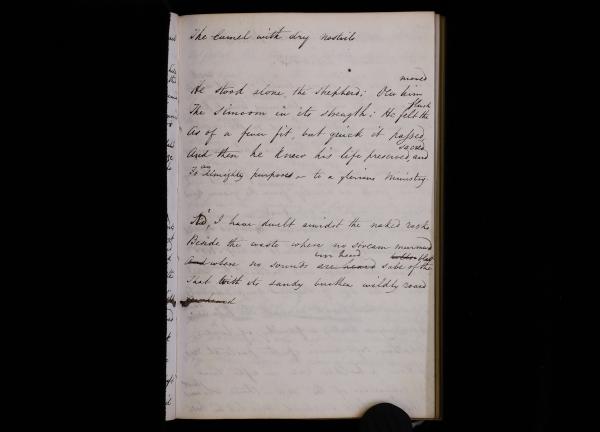 The camel with dry nostrils
moved
He stood alone, the shepherd; O'er him
flush
The simoom in its strength: He felt the
As of a fever fit, but quick it passed,
sacred,
And then he knew his life preserved, and
an
To Almighty purposes or to a glorious Ministry
I have dwelt amidst the naked rocks
Beside the waste where no stream murmured
ever heard
And where no sounds are heard save of the
That with its sandy burthen wildly roared